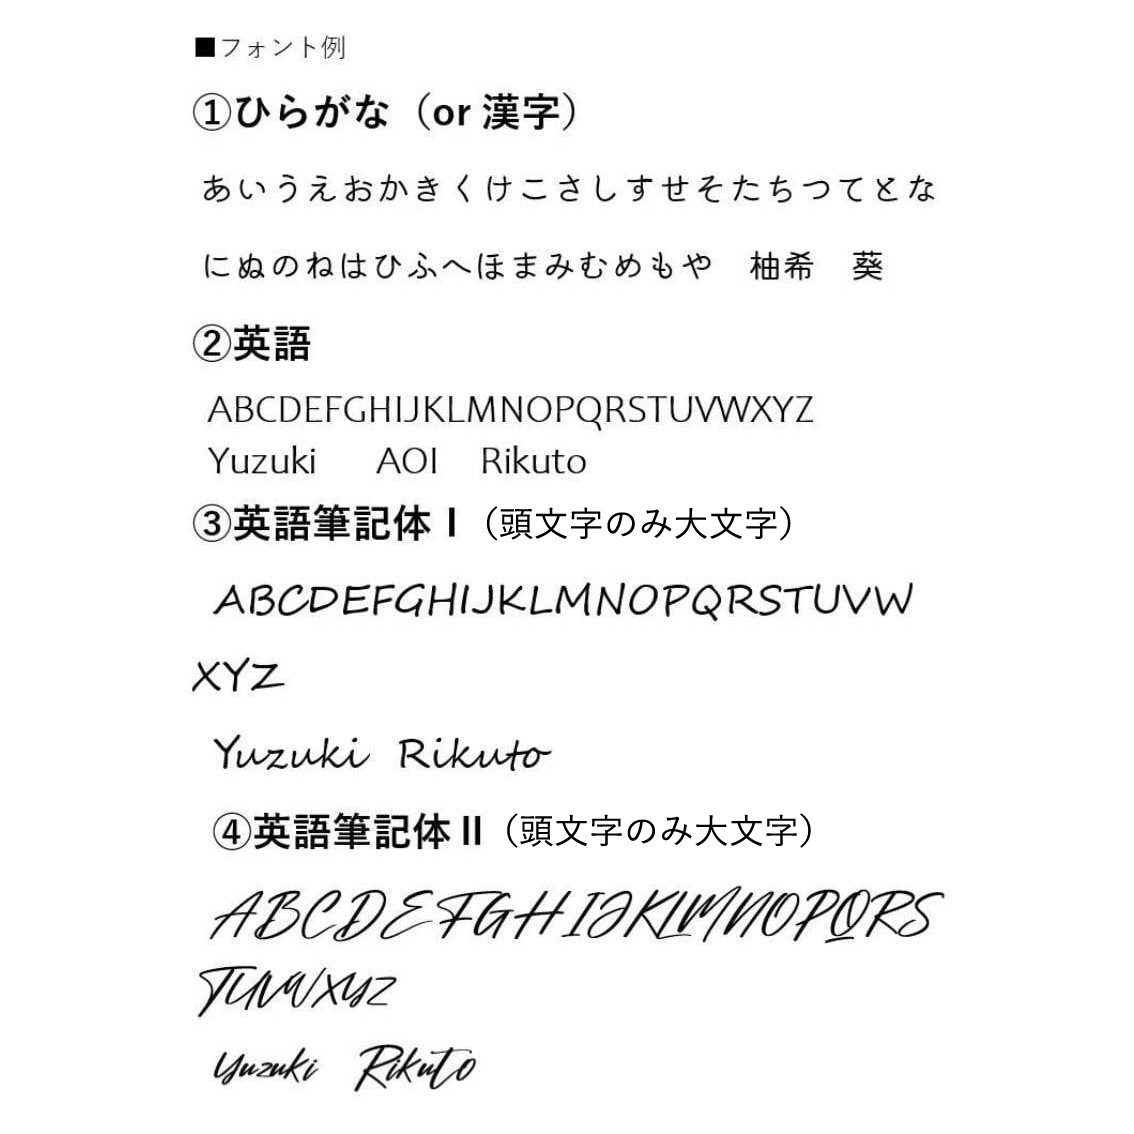 ■フォント例
①ひらがな（or 漢字）
あいうえおかきくけこさしすせそたちつてとな
にぬのねはひふへほまみむめもや　柚希　葵
②英語
ABCDEFGHIJKLMNOPQRSTUVWXYZ
Yuzuki AOI Rikuto
③英語筆記体Ⅰ（頭文字のみ大文字）
ABCDEFGHIJKLMNOPQRSTUVW
XYZ
Yuzuki Rikuto
④英語筆記体Ⅱ（頭文字のみ大文字）
ABCDEFGHIJKLMNOPQRS
TUVWXYZ
Yuzuki Rikuto